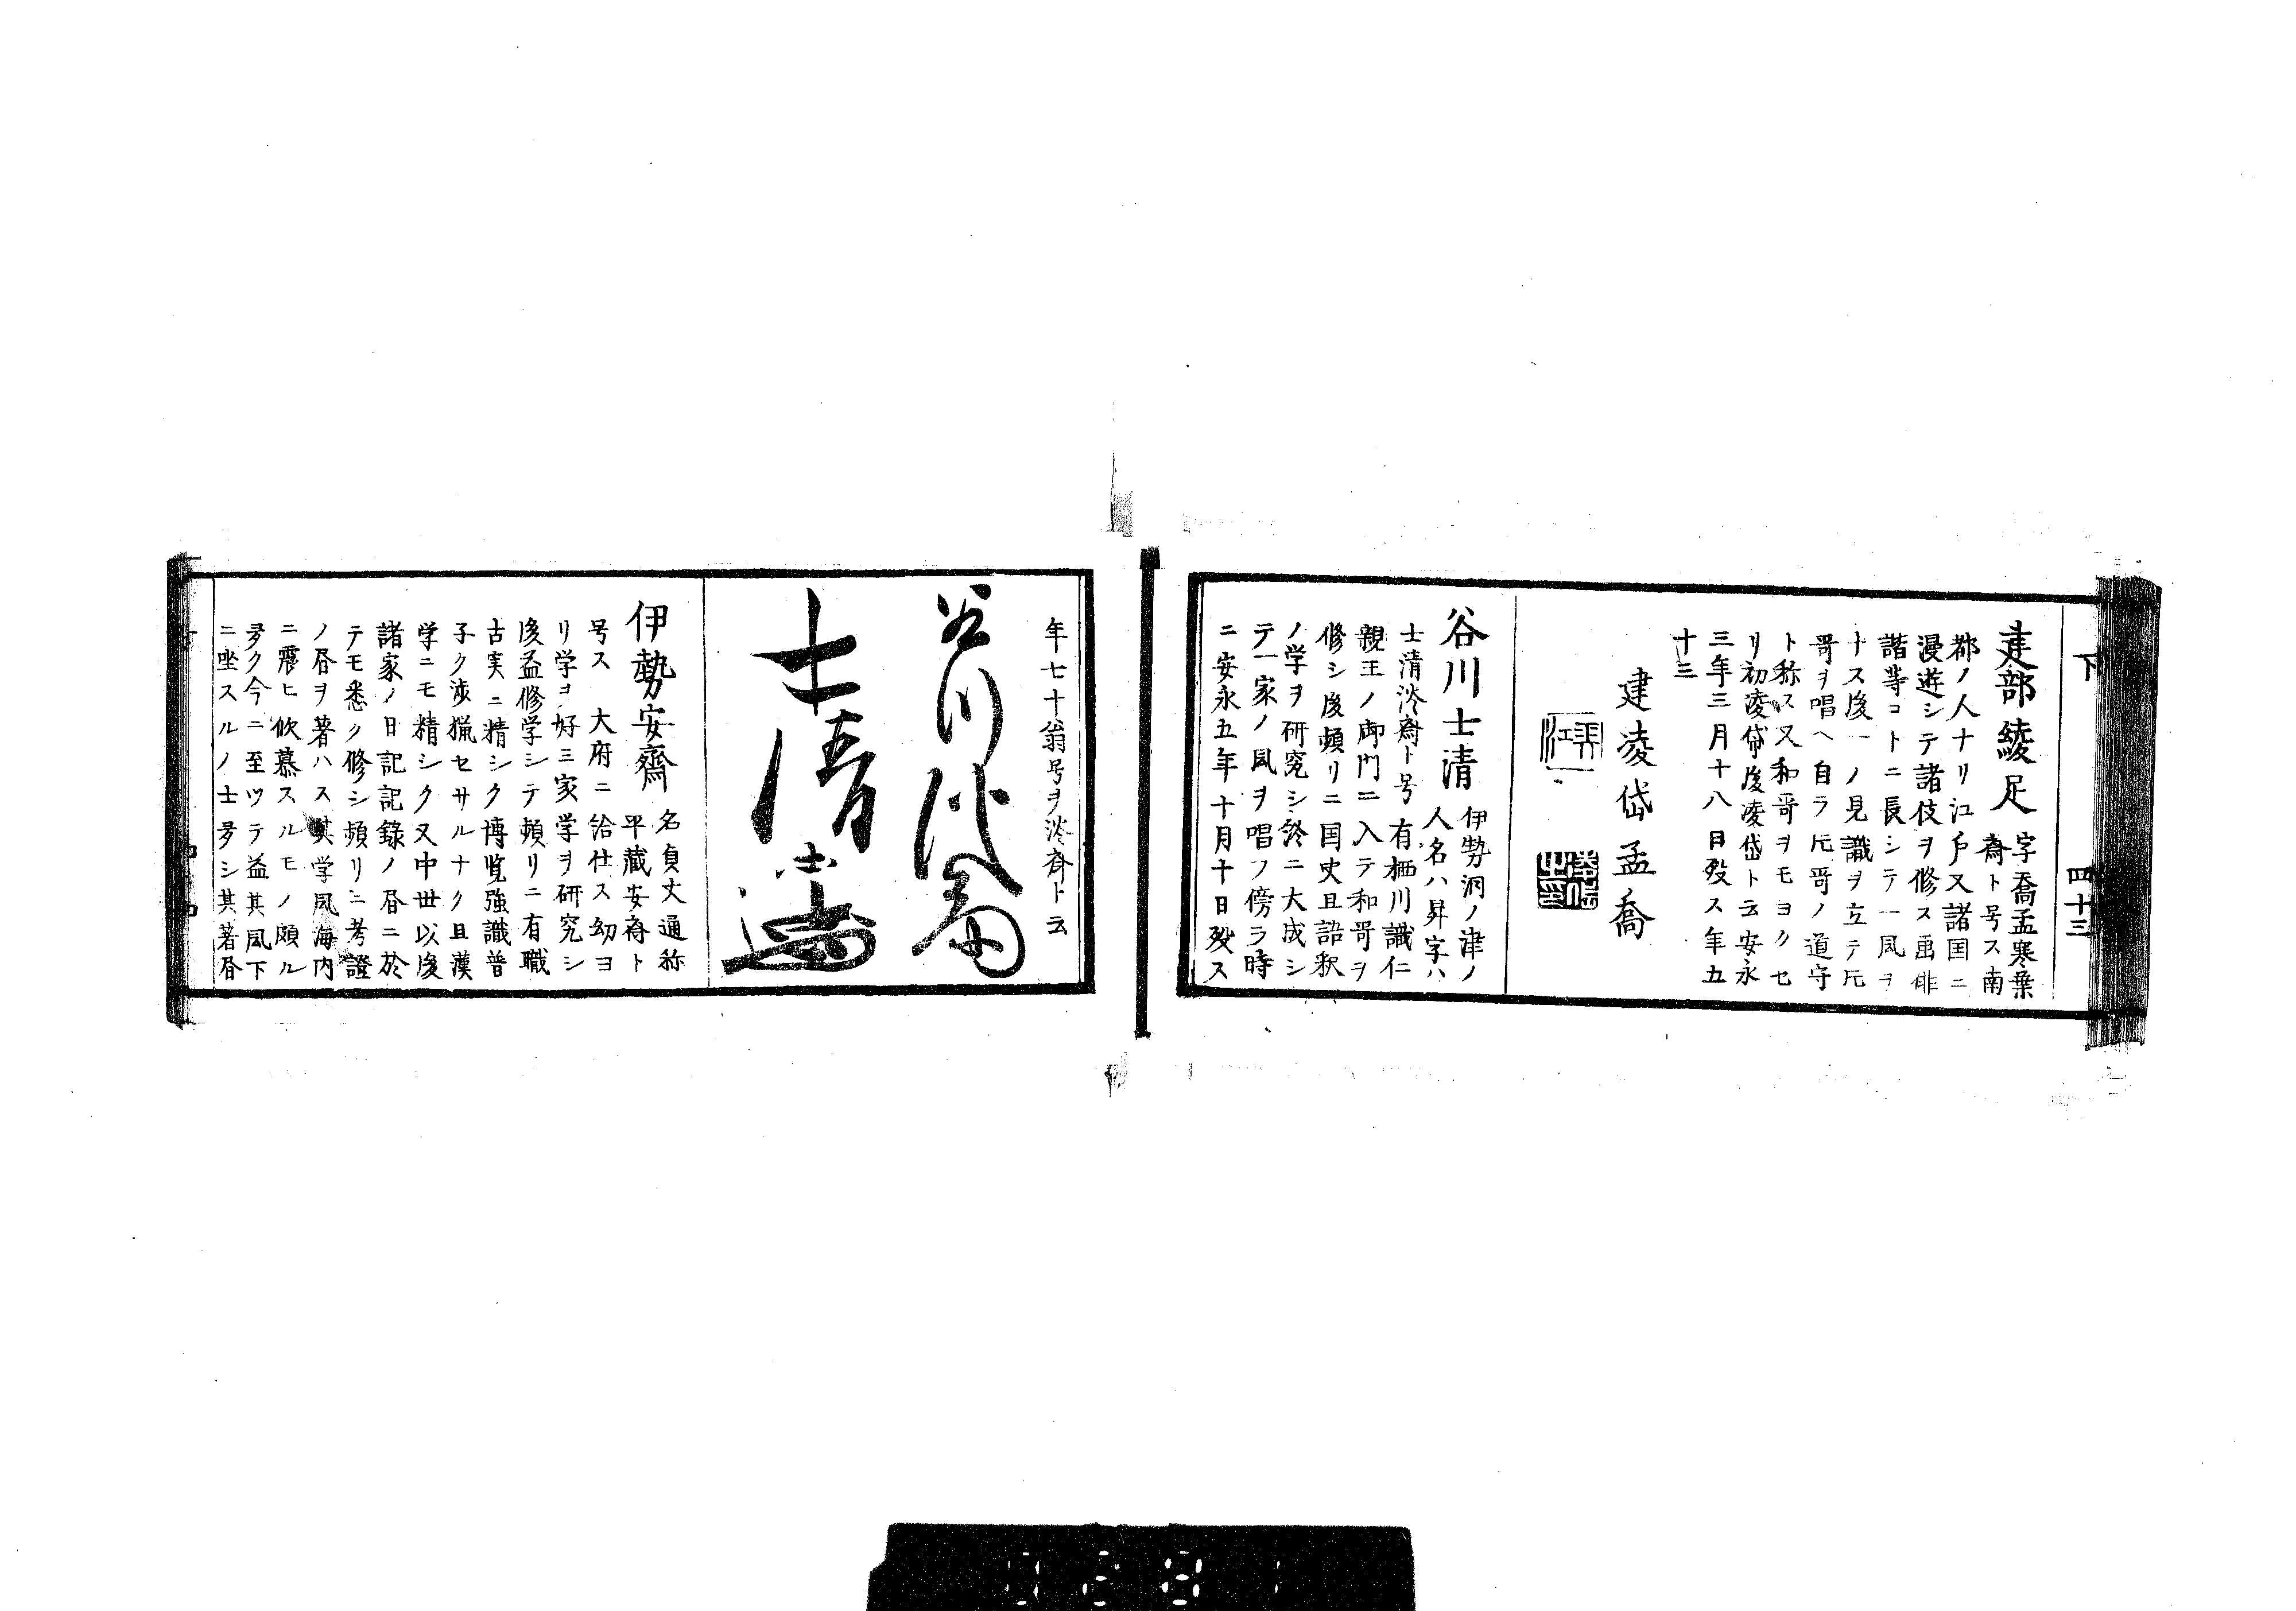 下 四十三
建部綾足 字喬孟寒葉
斎ト号ス南
都ノ人ナリ江戸又諸国ニ
漫遊シテ諸伎ヲ修ス画俳
諧等コトニ長シテ一風ヲ
ナス後一ノ見識ヲ立テ片
哥ヲ唱ヘ自ラ片哥ノ道守
ト称ス又和哥ヲモヨクセ
リ初凌岱後凌岱ト云安永
三年三月十八日歿ス年五
十三
建凌岱孟喬
谷川士清 伊勢洞ノ津ノ
人名ハ昇字ハ
士清淡齋ト号 有栖川識仁
親王ノ御門ニ入テ和哥ヲ
修シ後頻リニ国史且語釈
ノ学ヲ研究シ終ニ大成シ
テ一家ノ風ヲ唱フ傍ラ時
ニ安永五年十月十日歿ス
年七十翁号ヲ淡斎ト云
谷川淡斎
士清
伊勢安齋 名貞丈通称
平蔵安斎ト
号ス 大府ニ給仕ス幼ヨ
リ学ヲ好三家学ヲ研究シ
後益修学シテ頻リニ有職
古実ニ精シク博覧強識普
子ク渉猟セサルナク且漢
学ニモ精シク又中世以後
諸家ノ日記記録ノ昏ニ於
テモ悉ク修シ頻リニ考證
ノ昏ヲ著ハス其学風海内
ニ震ヒ欽慕スルモノ頗ル
夛ク今ニ至ツテ益其風下
ニ坐スルノ士夛シ其著昏